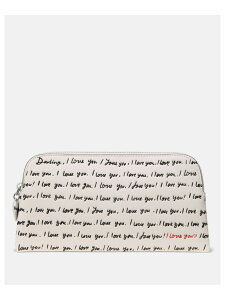 Darling, I love you! I love you! I love you! I love
you! I love you! I love you! I love you! I love you!
I love you! I love you! I love you! I love you!
I love you! I love you! I love you! I love you!
I love you! I love you! I love you! I love you!
I love you! I love you! I love you! I love you!
you! I love you! I love you! I love you! I love you!
love you! I love you! I love you! I love you! I love you!
I love you! I love you! I love you! I love you! I